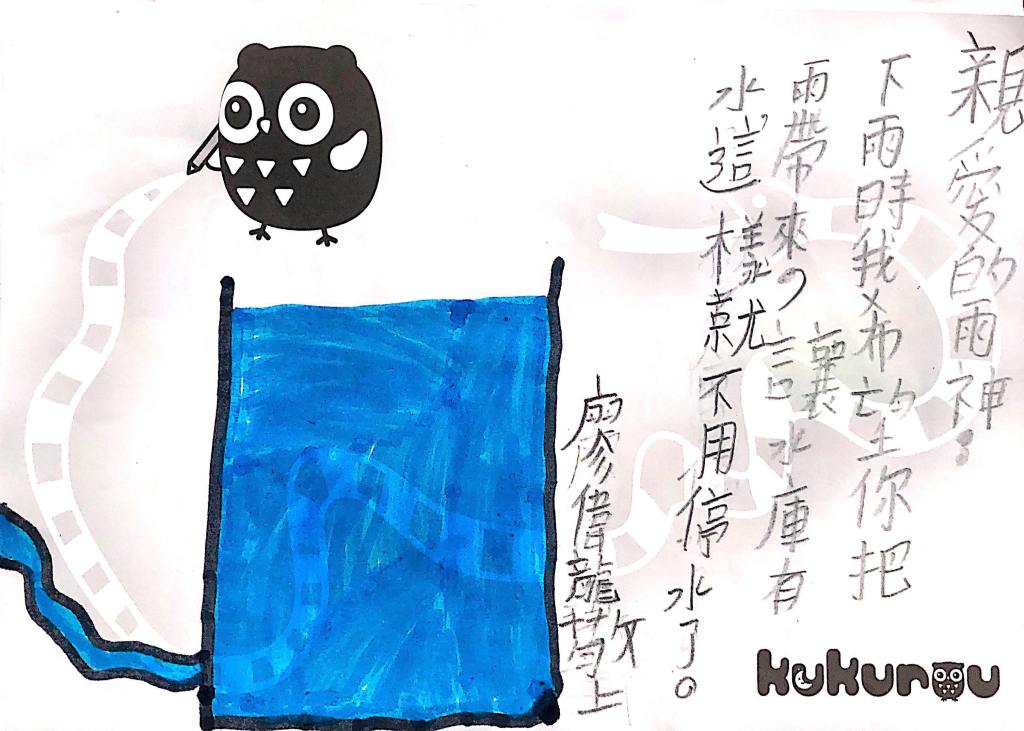 親愛的雨神：
下雨時我希望你把
雨帶來，讓水庫有
水，這樣就不用停水了。
廖偉龍敬上
kukurou